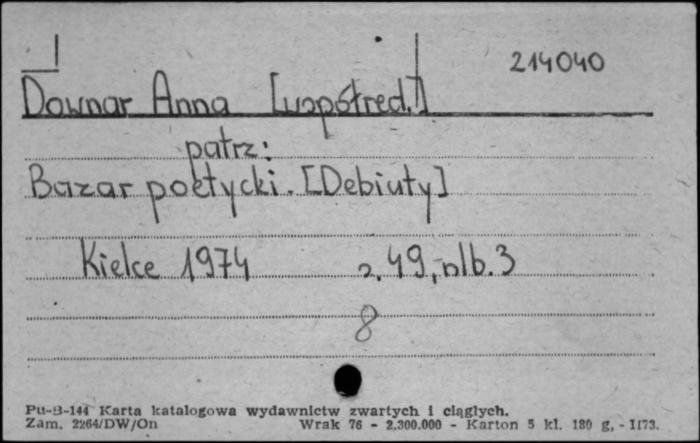 214040
Downar Anna [współred.]
patrz:
Bazar poetycki. [Debiuty]
Kielce 1974 s. 49, nlb. 3
8
Pu-B-144 Karta katalogowa wydawnictw zwartych i ciągłych.
Zam. 2264/DW/On Wrak 76 - 2,300.000 - Karton 5 kl. 180 g, - 1173.